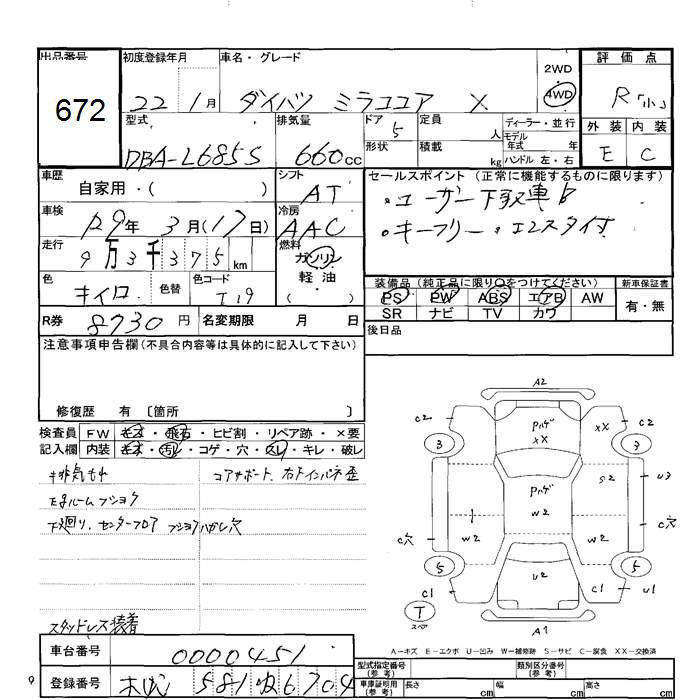 出品番号 初度登録年月 車名・グレード 2WD 評価点
672 22年1月 ダイハツ ミラココア X 4WD R「小」
型式 排気量 ドア 定員 ディーラー・並行 外装 内装
DBA-L685S 660cc 5 人 モデル年式 年 E C
形状 積載 kg ハンドル 左・右
車歴 シフト セールスポイント (正常に機能するものに限ります)
自家用・( ) AT ・ユーザー下取車
車検 冷房 ・キーフリー ・エコスタイ付
R9年 3月(17日) AAC
走行 燃料
9万3千375km ガソリン
軽・油
( )
色 色替 色コード 装備品 (純正品に限り○をつけてください) 新車保証書
キイロ PS PW ABS エアB AW 有・無
SR ナビ TV カワ
R券 8730円 名変期限 月 日 後日品
注意事項申告欄(不具合内容等は具体的に記入して下さい)
修復歴 有 〔箇所 〕
検査員 FW キズ・飛石・ヒビ割・リペア跡・×要
記入欄 内装 キズ・汚レ・コゲ・穴・スレ・キレ・破レ
排気もれ コアサポート、右下インパネ歪
下廻り、センターフロア フショクハガレ穴
スタッドレス装着
A2
C2 XX C2
3 XX 3
S2 U3
W2
C穴 W2 W2 C穴
5 U2 5
C1 C1 U1
T
スペア
A1
A-キズ E-エクボ U-凹み W-補修跡 S-サビ C-腐食 XX-交換済
車台番号 0000451 型式指定番号(参考) 類別区分番号(参考)
登録番号 581 6704 車庫証明用(参考) 長さ cm 幅 cm 高さ cm
9